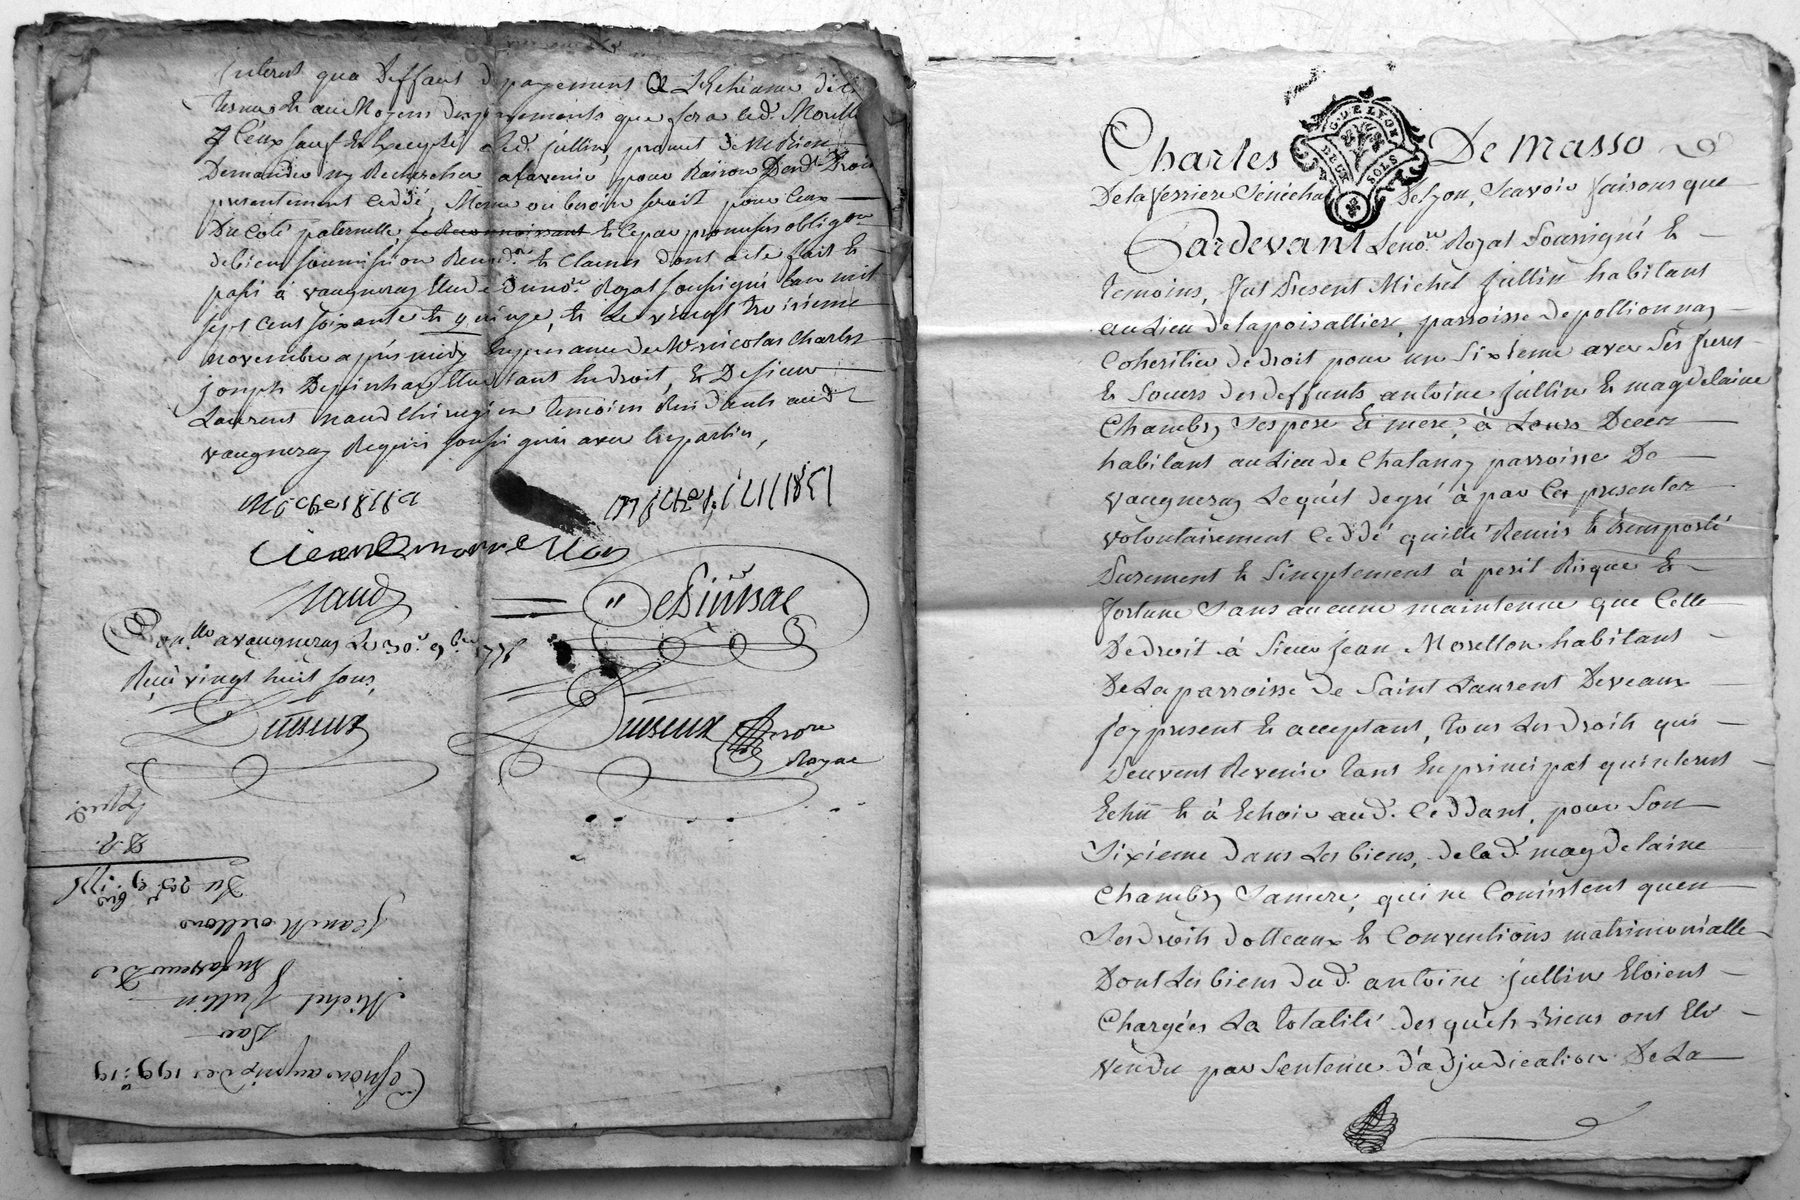 interest qua deffaut de payement & 
termes et au moyen des payements que fera led. Morellon
sauf et Excepté led. jullin, promet de ne Rien
Demander ny Rechercher a lavenir pour Raison Desd. Droits
presentement Ceddé, Meme ou besoin seroit pour Ceux
Du coté paternelle, et Ce par promesses obligaon
de biens soumission Renôn et clauses dont acte fait et
passé à vaugneray Etude du nore Royal soussigné l'an mil
sept cent soixante et quinze, et Le vingt troisieme
novembre après midy En presence de Me nicolas Charles
joseph Depinhac Etudiant En droit, et De sieur
Laurent naud Chirugien temoins Residants aud.
vaugneray Requis soussignés avec les parties,
Michel jullin
jean morrellon
Naud
Depinhac
Conllé a vaugneray Le 30e 9bre 775
Reçu vingt huit sous,
Duseux
Duseux nore
Royal
Cession au prix de 199: 19
Par
Michel Jullin
En faveur De
Jean Morellon
Du 23e 9bre 1775
Exped.
Charles De Masso
G. DE LYON
DEUX SOLS
De la ferriere Sénéchal De Lyon, scavoir faisons que
Pardevant Le nore Royal soussigné et
temoins, fut Present Michel jullin habitant
au Lieu de la poisalliere, parroisse de pollionnay
Coheritier de droit pour un Sixieme avec Ses freres
et Soeurs des deffunts antoine jullin et magdelaine
Chamby Ses pere et mere, à Leurs Décès
habitant au Lieu de Chatanay parroisse De
vaugneray Lequel de gré à par Ces presentes
volontairement Ceddé quitté Remis et transporté
Purement et Simplement à peril Risque et
fortune Sans aucune maintenue que Celle
De droit à Sieur jean Morellon habitant
De La parroisse de Saint Laurent De veaux
jcy present et acceptant, tous Les droits qui
Peuvent Revenir tant En principal qu'interest
Echü et à Echoir aud. Ceddant, pour Son
Sixieme dans Les biens, de lad. magdelaine
Chamby Sa mere, qui ne Consistent qu'en
Ses droits dotteaux et Conventions matrimonialle
Dont Les biens dud. antoine jullin Etoient
Chargées La totalité desquels Biens ont Eté
vendu par Sentence d'adjudication De La